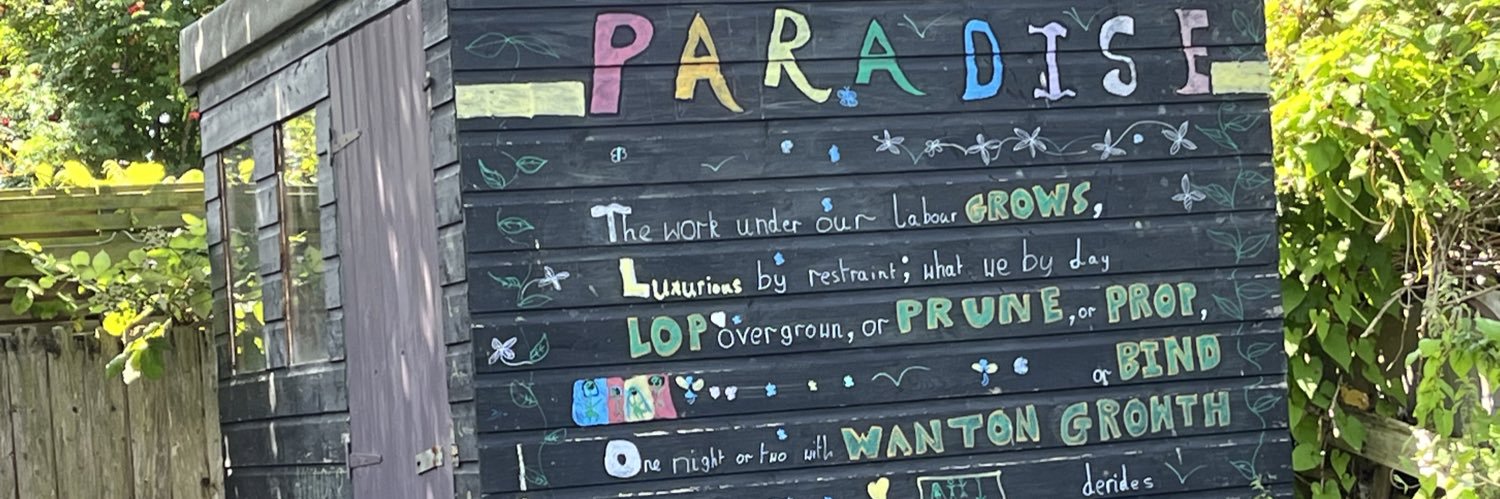 PARADISE
The work under our labour GROWS,
Luxurious by restraint; what we by day
LOP overgrown, or PRUNE, or PROP,
or BIND
One night or two with WANTON GROWTH
derides